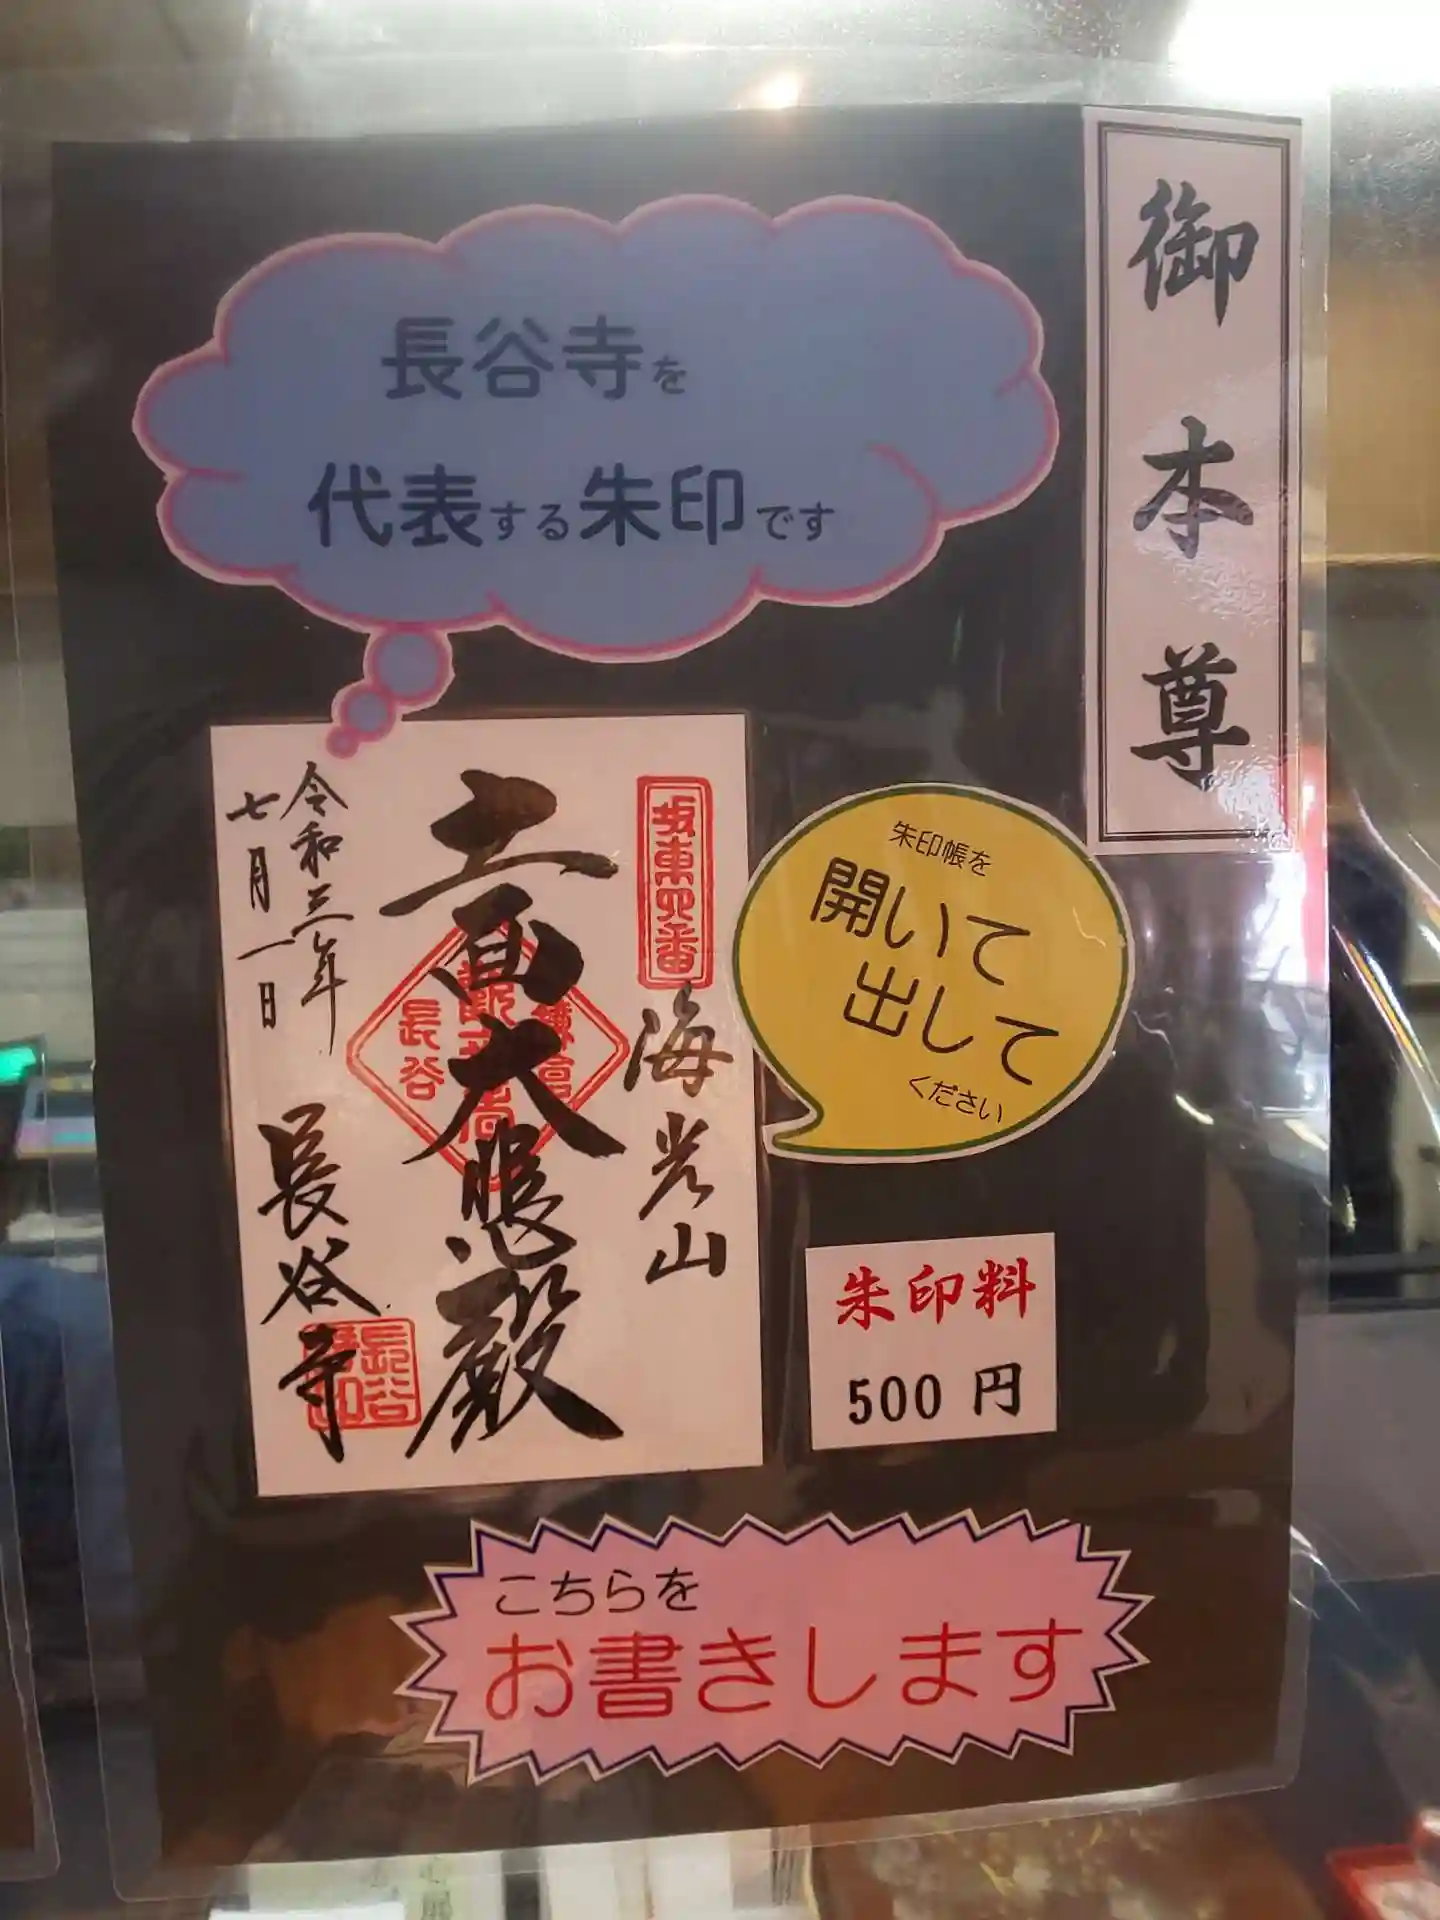 御本尊
長谷寺を
代表する朱印です
坂東四番
海光山
十一面大悲殿
長谷
令和三年
七月一日
長谷寺
長谷
朱印帳を
開いて
出して
ください
朱印料
500円
こちらを
お書きします